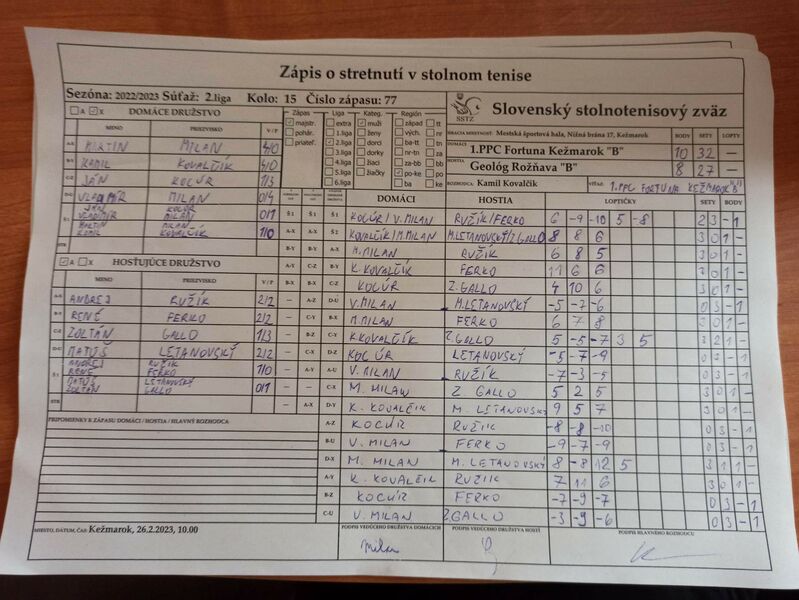 Zápis o stretnutí v stolnom tenise
Sezóna: 2022/2023 Súťaž: 2.liga Kolo: 15 Číslo zápasu: 77
SSTZ Slovenský stolnotenisový zväz
A X DOMÁCE DRUŽSTVO
MENO PRIEZVISKO V/P
A-X MARTIN MILAN 4/0
B-Y KAMIL KOVALČÍK 4/0
C-Z JÁN KOCÚR 1/3
D-U VLADIMÍR MILAN 0/4
Š1 JÁN KOCÚR
VLADIMÍR MILAN 0/1
MARTIN MILAN
KAMIL KOVALČÍK 1/0
STR
A X HOSŤUJÚCE DRUŽSTVO
MENO PRIEZVISKO V/P
A-X ANDREJ RUŽÍK 2/2
B-Y RENÉ FERKO 2/2
C-Z ZOLTÁN GALLO 1/3
D-U MATÚŠ LETANOVSKÝ 2/2
Š1 ANDREJ RUŽÍK
RENÉ FERKO 1/0
MATÚŠ LETANOVSKÝ
ZOLTÁN GALLO 0/1
STR
PRIPOMIENKY K ZÁPASU DOMÁCI / HOSTIA / HLAVNÝ ROZHODCA:
MIESTO, DÁTUM, ČAS: Kežmarok, 26.2.2023, 10.00
Zápas Liga Kateg. Región
majstr. extra muži západ tt
pohár. 1.liga ženy vých. nr
priateľ. 2.liga dorci ba-tt tn
3.liga dorky ba tn-za
4.liga žiaci za-bb bb
5.liga žiačky po-ke po
6.liga ke
HRACIA MIESTNOSŤ: Mestská športová hala, Nižná brána 17, Kežmarok BODY SETY LOPTY
DOMÁCI 1.PPC Fortuna Kežmarok "B" 10 32 —
HOSTIA Geológ Rožňava "B" 8 27 —
ROZHODCA: Kamil Kovalčík VÍŤAZ: 1.PPC FORTUNA KEŽMAROK "B"
DOMÁCI HOSTIA LOPTIČKY SETY BODY
Š1 Š1 Š1 KOCÚR/V.MILAN RUŽÍK/FERKO 6 -9 -10 5 -8 2 3 - 1
A-X A-X Š2 KOVALČÍK/M.MILAN M.LETANOVSKÝ/Z.GALLO 8 8 6 3 0 1 -
B-Y B-Y A-X M.MILAN RUŽÍK 6 8 5 3 0 1 -
A-Y C-Z B-Y K.KOVALČÍK FERKO 11 6 6 3 0 1 -
B-X C-Z KOCÚR Z.GALLO 4 10 6 3 0 1 -
— A-Z D-U V.MILAN M.LETANOVSKÝ -5 -7 -6 0 3 - 1
— C-Y B-X M.MILAN FERKO 6 7 8 3 0 1 -
— B-Z C-Y K.KOVALČÍK Z.GALLO 5 -5 -7 3 5 3 2 1 -
— C-X D-Z KOCÚR LETANOVSKÝ -5 -7 -9 0 3 - 1
— A-Y A-U V. MILAN RUŽÍK -7 -3 -5 0 3 - 1
— — C-X M. MILAN Z. GALLO 5 2 5 3 0 1 -
— A-X D-Y K. KOVALČÍK M. LETANOVSKÝ 9 5 7 3 0 1 -
A-Z KOCÚR RUŽÍK -8 -8 -10 0 3 - 1
B-U V. MILAN FERKO -9 -7 -9 0 3 - 1
D-X M. MILAN M. LETANOVSKÝ 8 -8 12 5 3 1 1 -
A-Y K. KOVALČÍK RUŽÍK 7 11 6 3 0 1 -
B-Z KOCÚR FERKO -7 -9 -7 0 3 - 1
C-U V. MILAN Z GALLO -3 -9 -6 0 3 - 1
PODPIS VEDÚCEHO DRUŽSTVA DOMÁCICH PODPIS VEDÚCEHO DRUŽSTVA HOSTÍ PODPIS HLAVNÉHO ROZHODCU
Milan